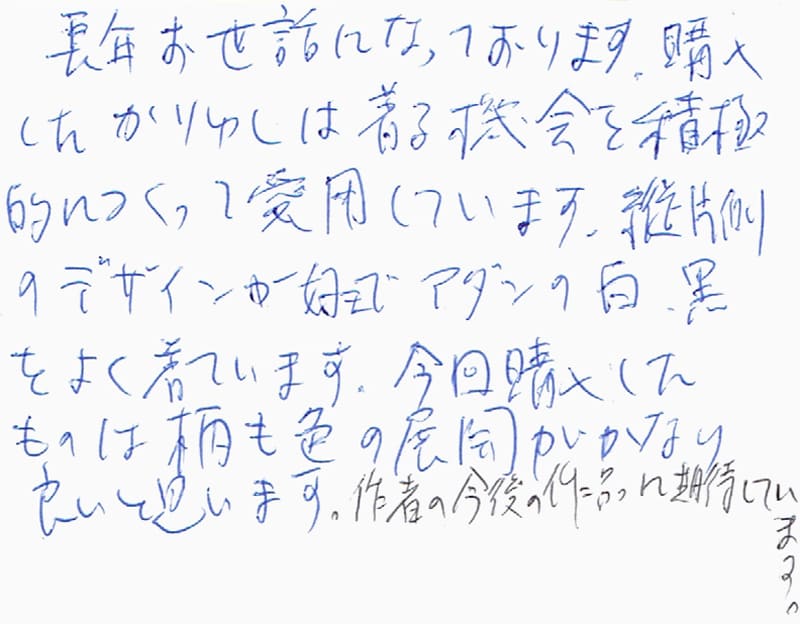 長年お世話になっております。購入
したかりゆしは着る機会を積極
的につくって愛用しています。縦片側
のデザインが好きで アダンの白、黒
をよく着ています。今回購入した
ものは柄も色の展開がかなり
良いと思います。作者の今後の作品に期待してい
ます。